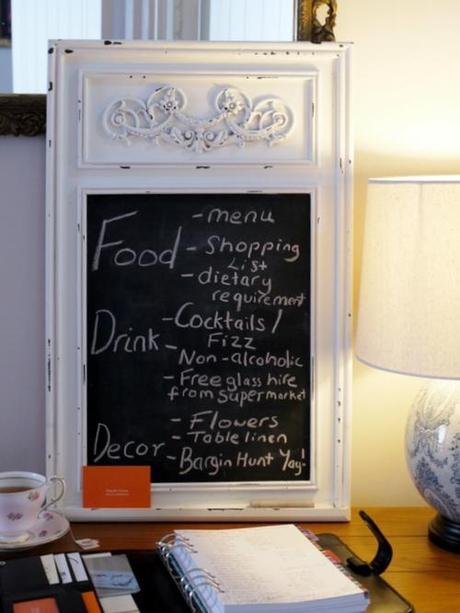 - menu
Food - Shopping
List
- dietary
requirement
- Cocktails /
Drink - Fizz
Non-alcoholic
- Free glass hire
from supermarket
- Flowers
- Table linen
Decor - Bargin Hunt Yay!